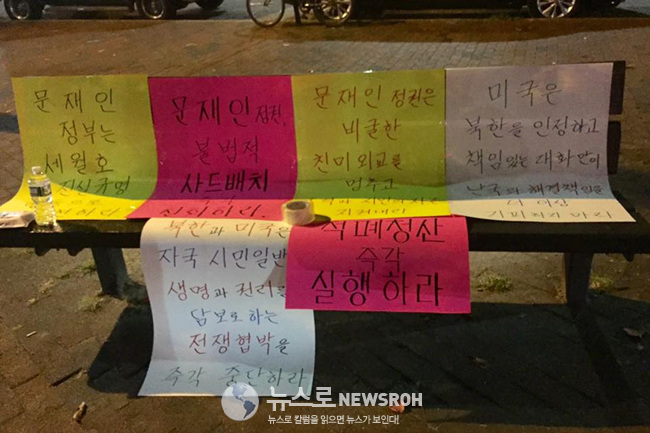 문재인
정부는
세월호
진상규명
문재인 정권,
불법적
사드배치
철회하라.
문재인 정권은
비굴한
친미외교를
멈추고
미국은
북한을 인정하고
책임있는 대화만이
난국의 해결책임을
더 이상
기피하지 마라
북한과 미국은
자국 시민일반
생명과 권리를
담보로하는
전쟁협박을
즉각 중단하라
적폐청산
즉각
실행하라
뉴스로 NEWSROH
뉴스로 칼럼을 읽으면 뉴스가 보인다!